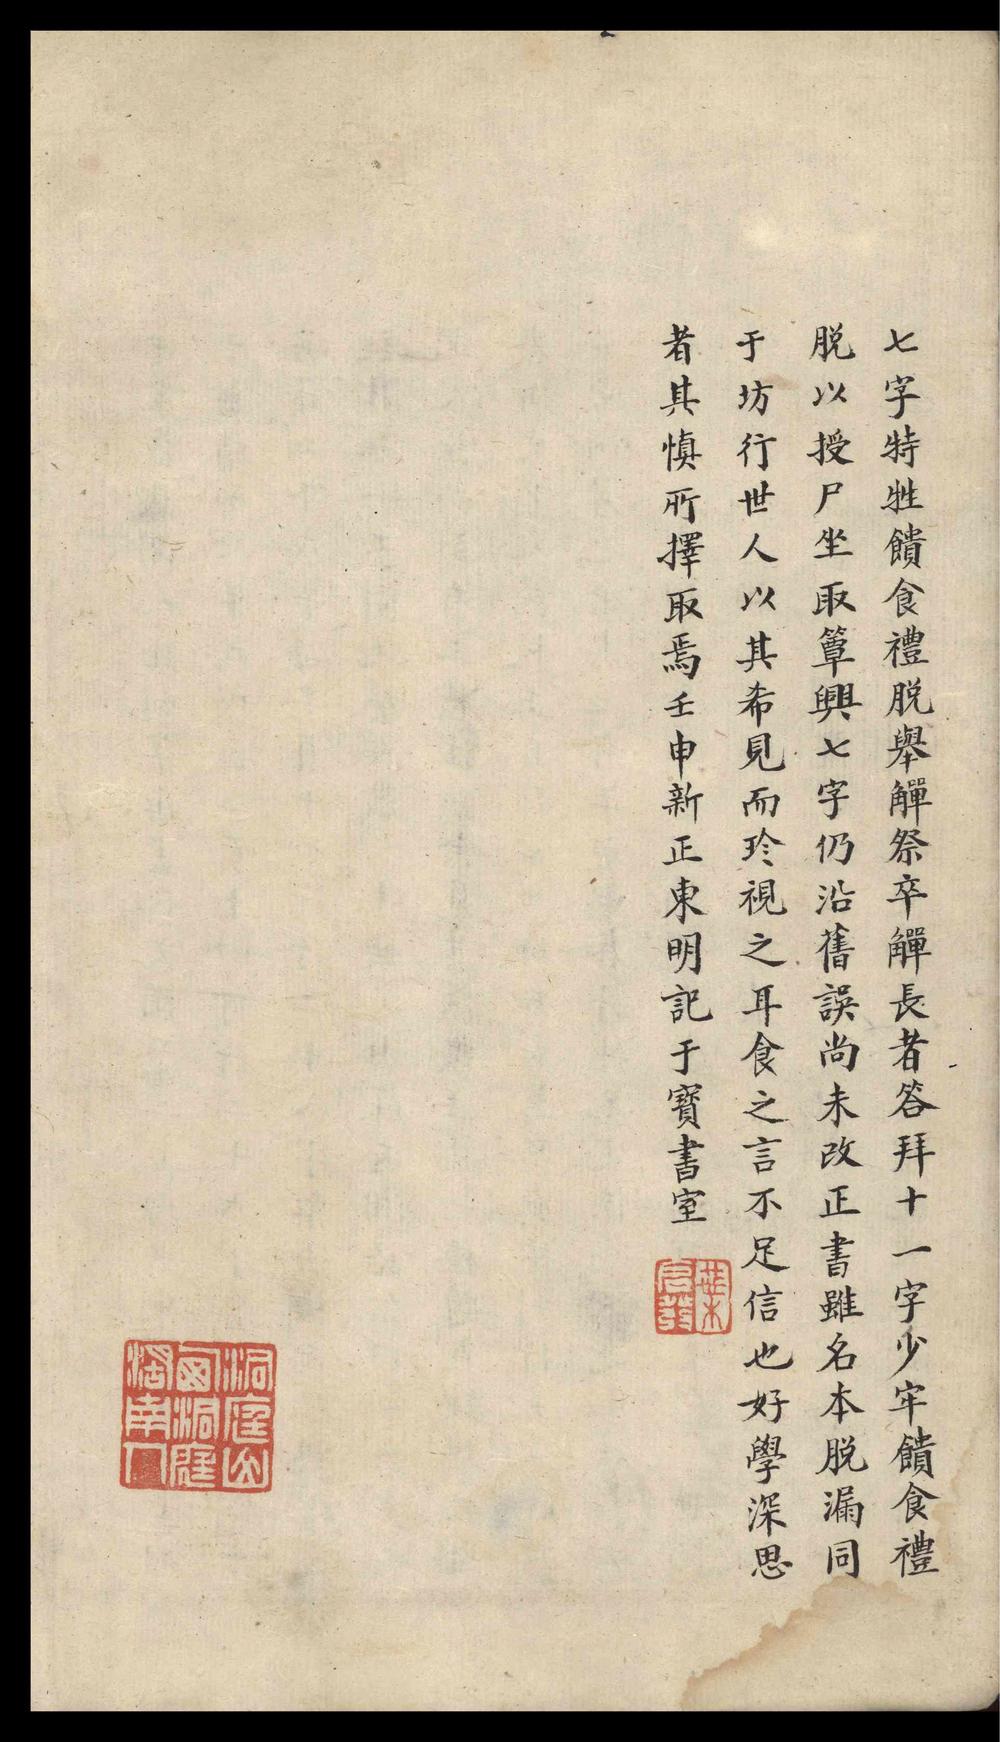 七字特牲饋食禮脫舉觶祭卒觶長者答拜十一字少牢饋食禮
脫以授尸坐取簞興七字仍沿舊誤尚未改正書雖名本脫漏同
于坊行世人以其希見而珍視之耳食之言不足信也好學深思
者其慎所擇取焉壬申新正東明記于寶書室
葉
洞庭山
洞庭
南